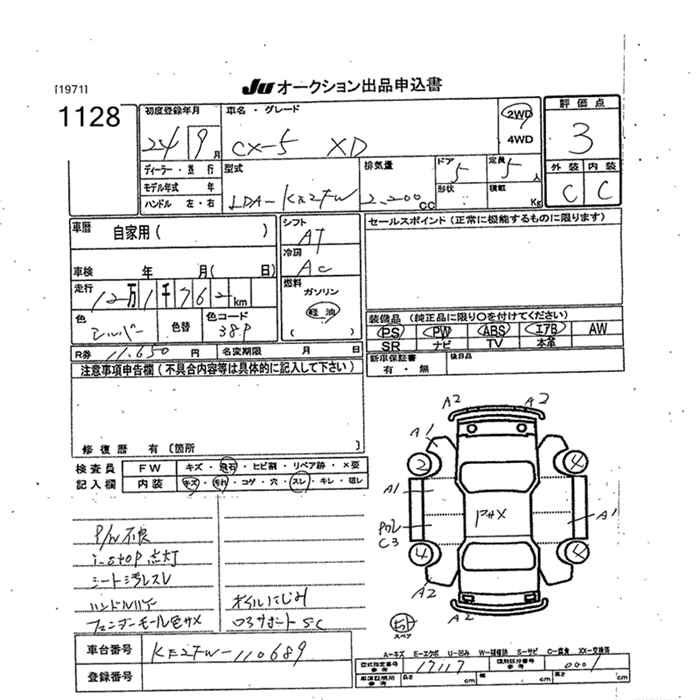 [1971]
JU オークション出品申込書
1128
初度登録年月
24年 9月
車名・グレード
CX-5 XD
2WD
4WD
評価点
3
外装 内装
C C
ディーラー・並行
モデル年式 年
ハンドル 左・右
型式
LDA-KE2FW
排気量
2,200CC
ドア
5
形状
定員
5人
積載
Kg
車歴
自家用( )
車検 年 月( 日)
走行
12万1千762km
色
シルバー
色替
色コード
38P
シフト
AT
冷房
AC
燃料
ガソリン
軽油
( )
セールスポイント(正常に機能するものに限ります)
装備品(純正品に限り○を付けてください)
PS PW ABS エアB AW
SR ナビ TV 本革
新車保証書
有・無
後日品
R券 11,650円
名変期限 月 日
注意事項申告欄(不具合内容等は具体的に記入して下さい)
修復歴 有〔箇所 〕
検査員
記入欄
FW キズ・飛石・ヒビ割・リペア跡・×要
内装 キズ・汚れ・コゲ・穴・スレ・キレ・垂レ
P/W不良
i-stop点灯
シート汚レスレ
オイルにじみ
フェンダーモール色サメ
ロアサポートSC
A2 A2
A1
2 4
A1 A1
PAX
C3
4 4
A2 A2
スペア
車台番号
KE2FW-110689
登録番号
A-キズ E-エクボ U-凹み W-補修跡 S-サビ C-腐食 XX-交換済
型式指定番号
参考
17117
類別区分番号
参考
0001
車庫証明用
参考
cm cm cm